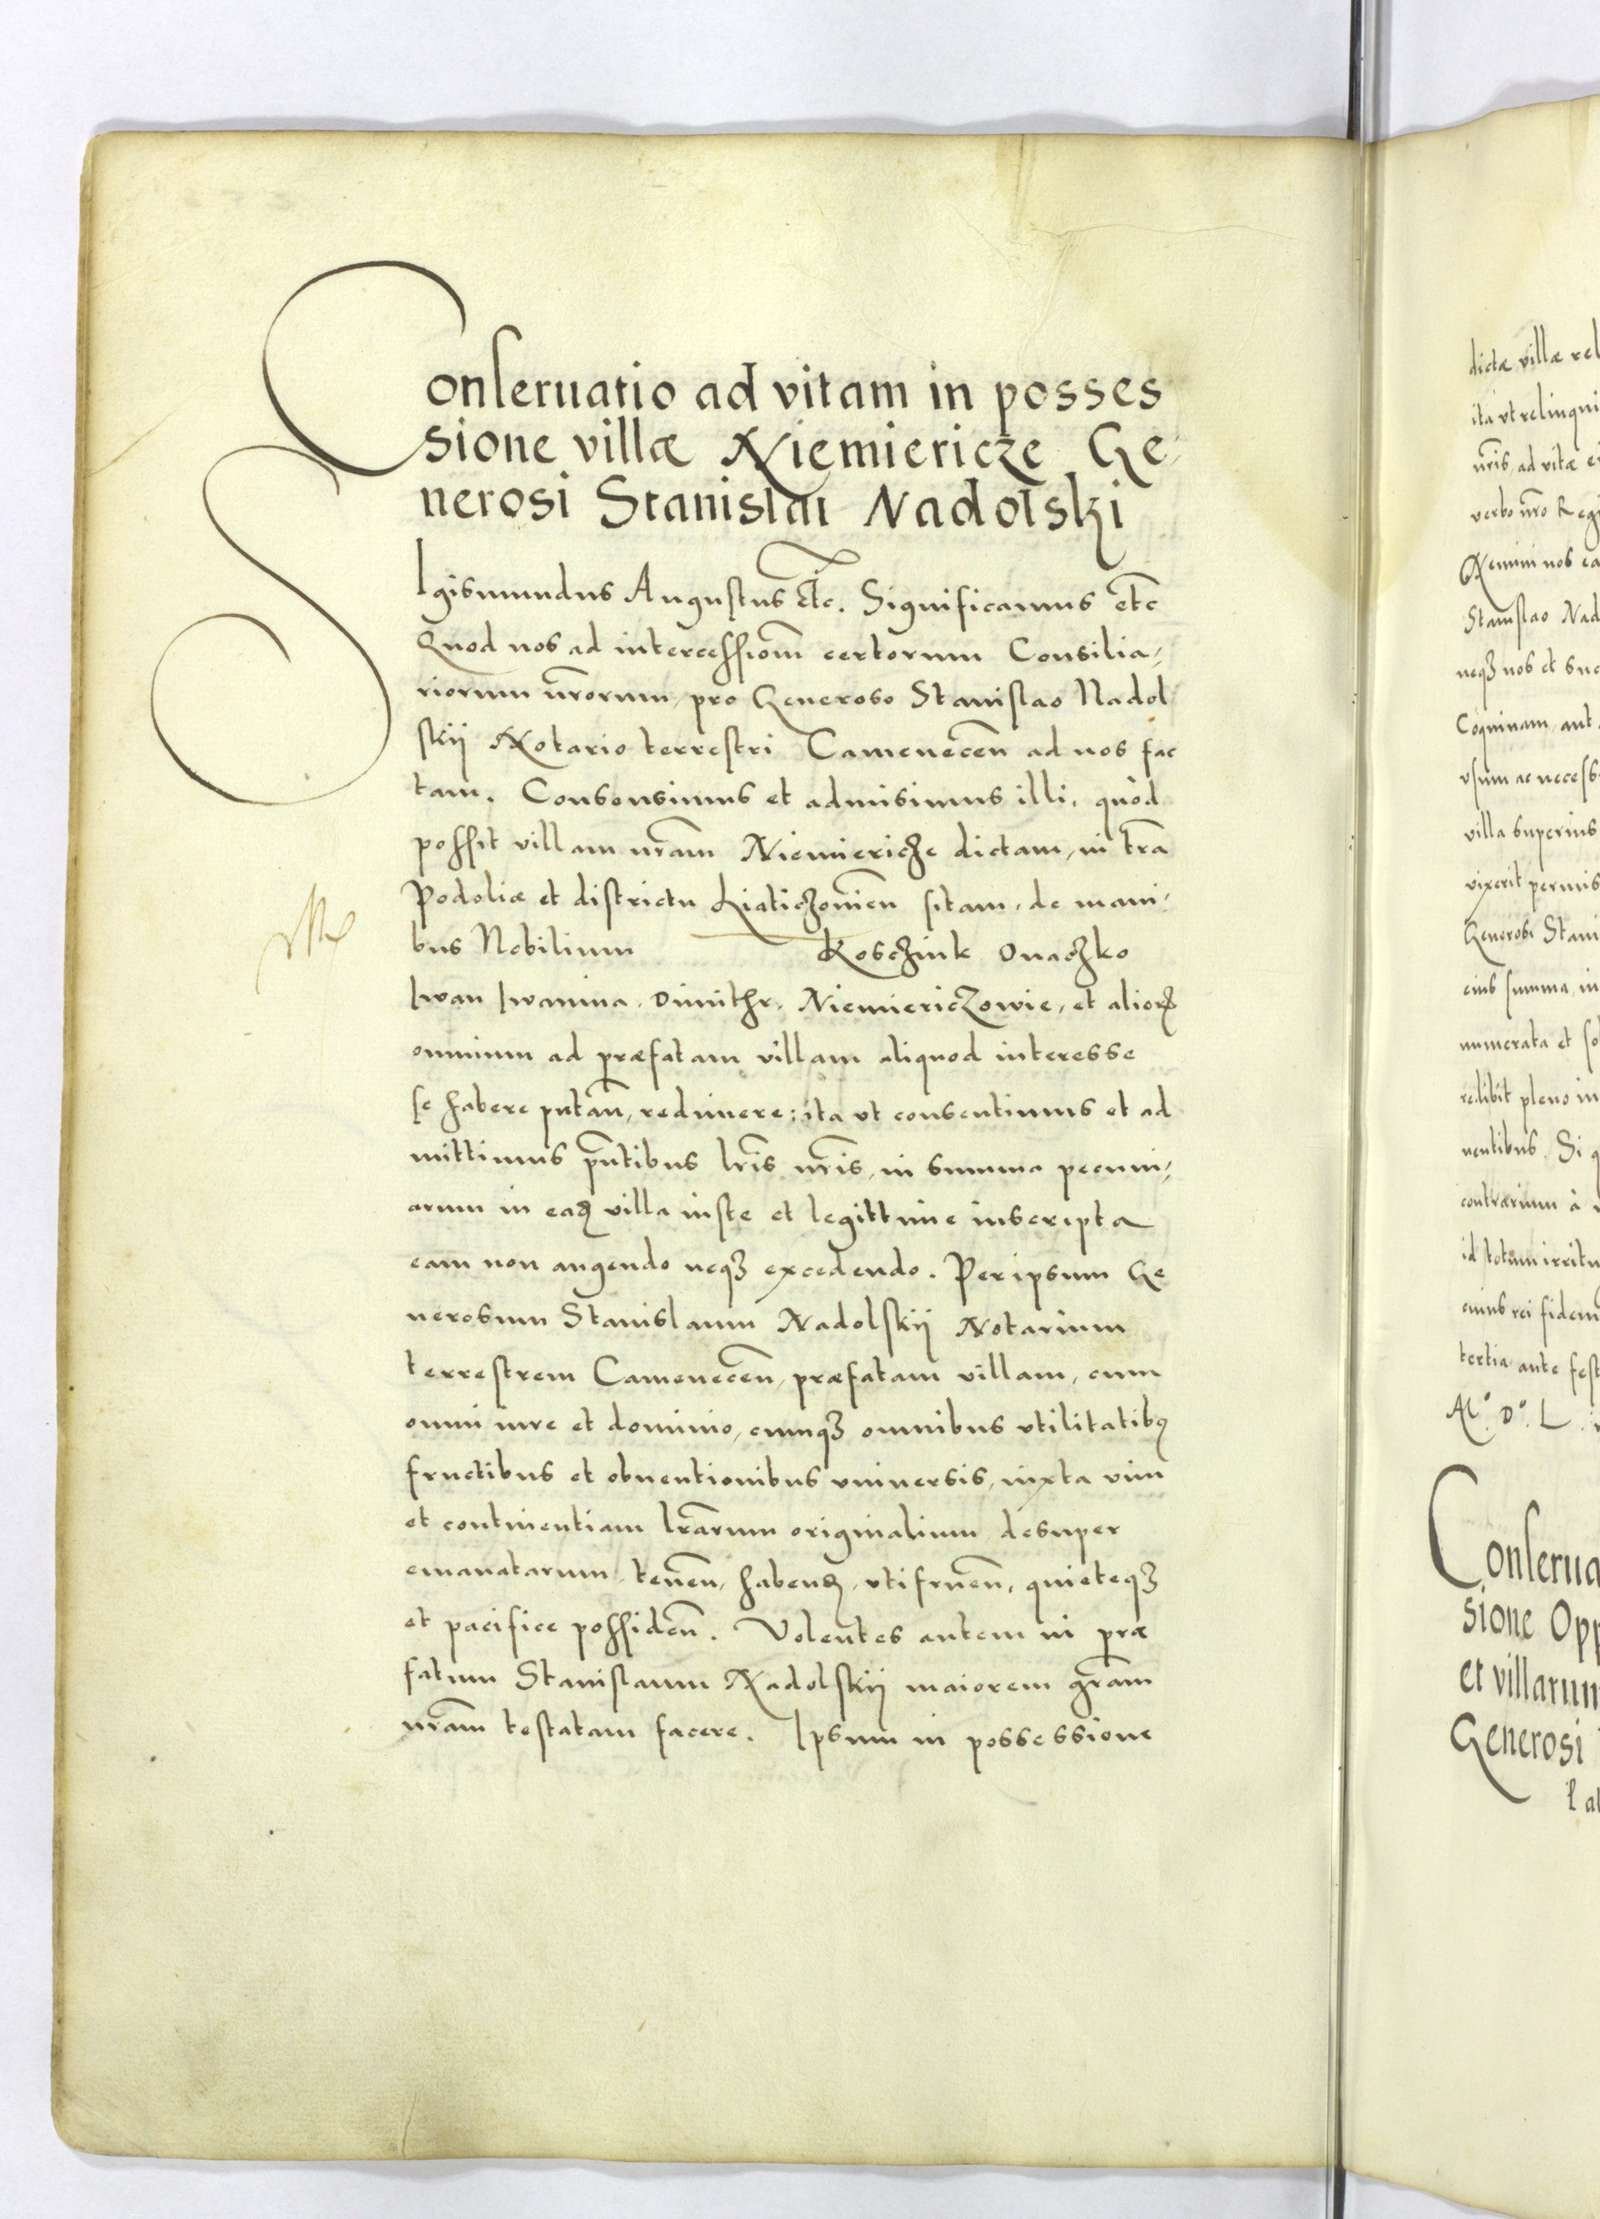 Conseruatio ad vitam in posses
sione villæ Niemiericze Ge,
nerosi Stanislai Nadolski
Sigismundus Augustus etc. Significamus etc
Quod nos ad intercessiom̃ certorum Consilia,
riorum nr̃orum, pro Generoso Stanislao Nadol
skij Notario terrestri Camenecen̄ ad nos fac
tam. Consensimus et admisimus illi, quod
possit villam nr̃am Niemiericze dictam, in tr̃a
Podoliæ et districtu Liaticzouien̄ sitam, de mani,
bus Nobilium Kosczink Onaczko
Iwan Iwanina, Dimithr, Niemiericzowie, et alior̃
omnium ad præfatam villam aliquod interesse
se habere putan̄, redimere: ita vt consentimus et ad
mittimus pñtibus lr̃is nr̃is, in summa pecuni,
arum in ead villa iuste et legittime inscripta
eam non augendo neqꝫ excedendo. Per ipsum Ge
nerosum Stanislaum Nadolskij Notarium
terrestrem Camenecen̄, præfatam villam, cum
omni iure et dominio, cumqꝫ omnibus vtilitatibꝰ
fructibus et obuentionibus vniuersis, iuxta vim
et continentiam lr̃arum originalium desuper
emanatarum, tenen̄, habend, vti fruen̄, quieteqꝫ
et pacifice possiden̄. Volentes autem in præ
fatum Stanislaum Nadolskij maiorem gr̃am
nr̃am testatam facere. Ipsum in possessione
dictæ villæ rel
ita vt relinqui
nr̃is, ad vitæ ei
verbo nr̃o Regi
Nemini nos ea
Stanislao Nad
neqꝫ nos et suc
Coquinam aut
vsum ac necess
villa superius
vixerit permis
Generosi Stani
eius summa in
numerata et so
redibit pleno iu
uentibus. Si q
contrarium à
id totum irritu
cuius rei fidem
tertia ante fest
Mº. Dº. L.
Conserua
sione Opp
et villarum
Generosi
lat